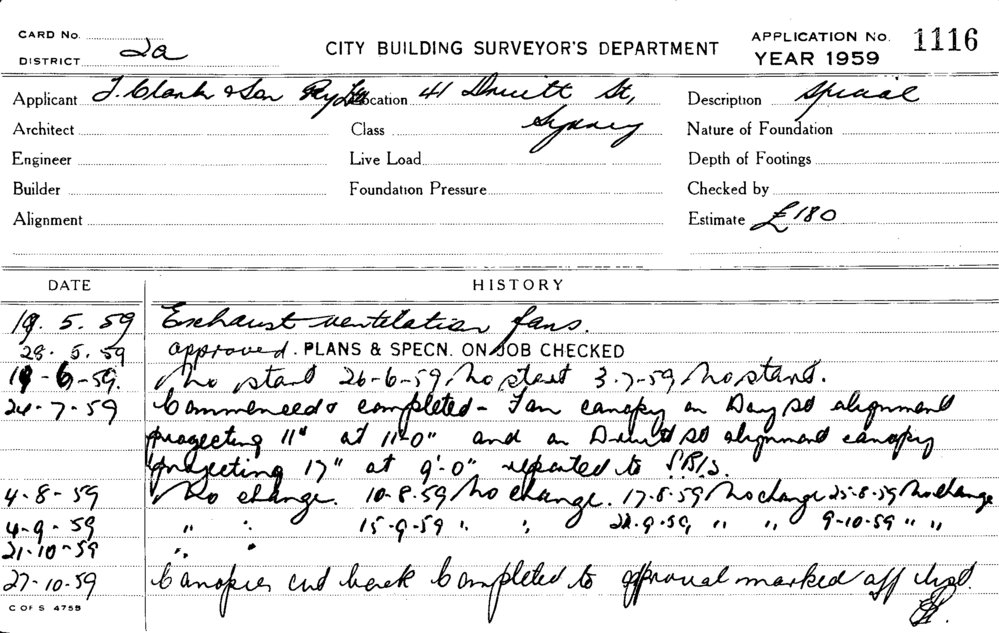 CARD No.
DISTRICT 2a
CITY BUILDING SURVEYOR'S DEPARTMENT
APPLICATION No. 1116
YEAR 1959
Applicant J. Clark & Son Pty Ltd Location 41 Druitt St, Description Special
Architect Class Sydney Nature of Foundation
Engineer Live Load Depth of Footings
Builder Foundation Pressure Checked by
Alignment Estimate £180
DATE HISTORY
19. 5. 59 Exhaust ventilation fans.
28. 5. 59 approved. PLANS & SPECN. ON JOB CHECKED
-6-59. No start 26-6-59 No start 3-7-59 No start.
24-7-59 Commenced & completed - Fan canopy on Day St alignment
projecting 11" at 11'-0" and on Druitt St alignment canopy
projecting 17" at 9'-0" reported to
4-8-59 No change. 10-8-59 No change. 17-8-59 No change 25-8-59 No change
4-9-59 " " 15-9-59 " " 9-59 " " 9-10-59 " "
21-10-59 " "
27-10-59 Canopies cut back Completed to approval marked off
C OF S 4759